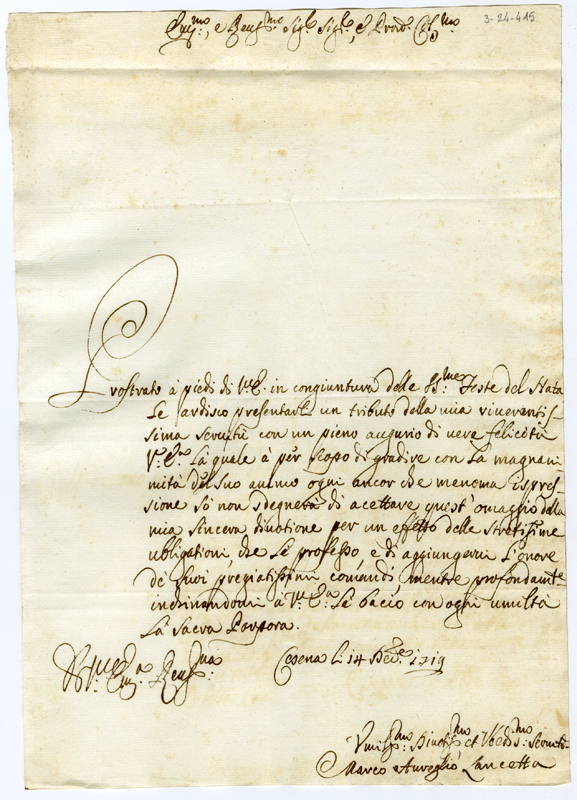 3-24-415
Em.mo, e Reu.mo Sig.r Sig.r, e Pron. Col.mo
Prostrato à piedi di V.E. in congiuntura delle SS.me Feste del Nata
le ardisco presentarle un tributo della mia riverentis
sima seruitù con un pieno augurio di vere felicità
V.E. La quale à per scopo di gradire con La magnani
mità del suo animo ogni ancor che menoma espres-
sione sò non sdegnerà di accettare quest'omaggio della
mia sincera diuotione per un effetto delle stretissime
ubbligationi, che Le professo e di aggiungermi L'onore
de suoi pregiatissimi comandi mentre profondamte
inchinandomi à V.ra E.a Le bacio con ogni umiltà
La Sacra Porpora.
Em.a Reu.ma
Cesena li 14 Dec.re 1719
Vmil.mo Diuot.mo et Obed.mo Seruit.
Marco Aureglio Lancetta